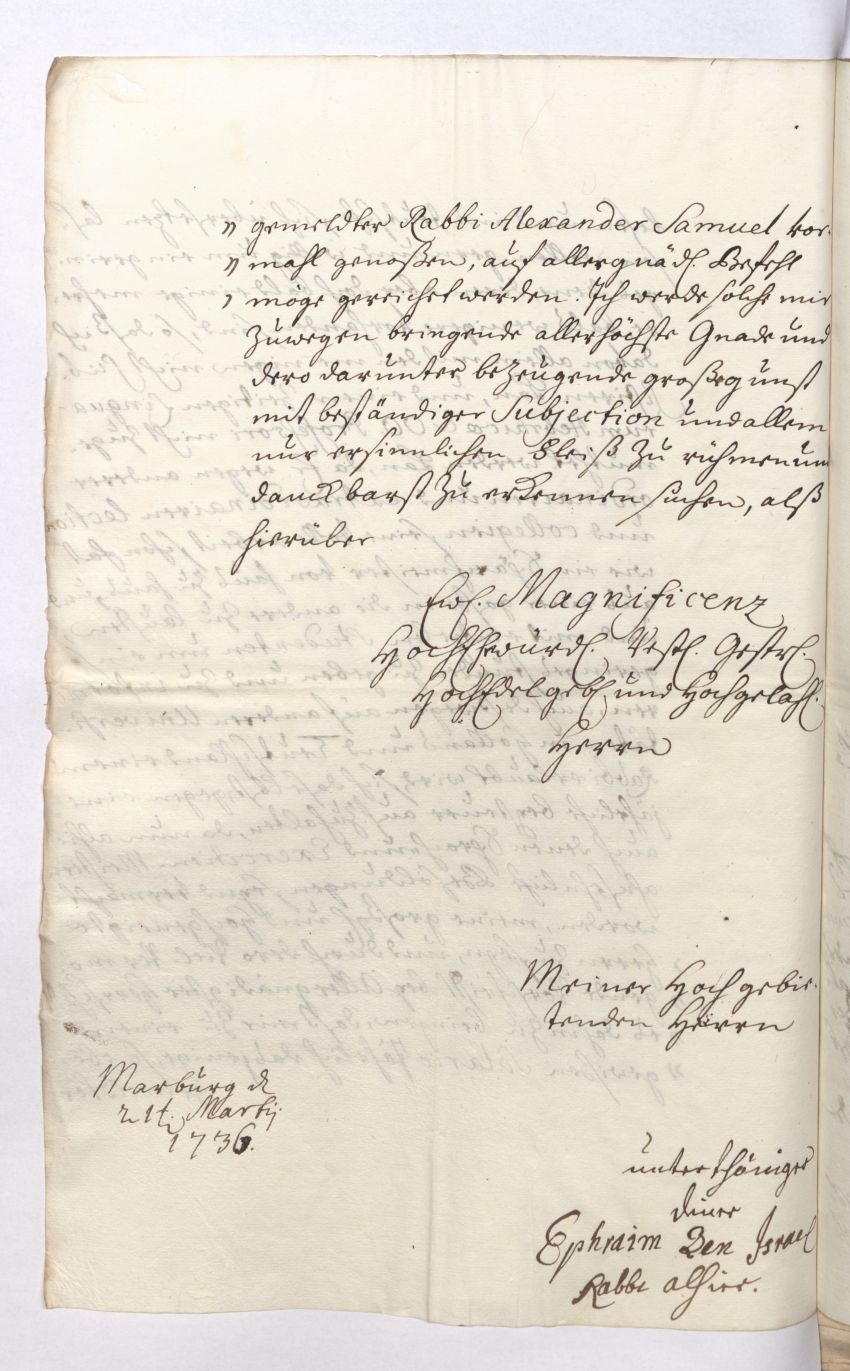 " gemeldter Rabbi Alexander Samuel vor-
" mahl genoßen, auf allergnäd. Befehl
" möge gereichet werden. Ich werde solche mir
zuwegen bringende allerhöchste Gnade und
dero darunter bezeugende großgunst
mit beständiger Subjection und allem
nur ersinnlichen Fleiß zu rühmen und
danckbarst zu erkennen suchen, alß
hierüber
Ew. Magnificenz
HochEhrwürd. Vest. Gestr.
HochEdelgeb. und Hochgelahr.
Herrn
Meiner Hochgebie-
tenden Herrn
Marburg d
21t. Martij
1736.
unterthäniger
diener
Ephraim Ben Israel
Rabbi alhier.